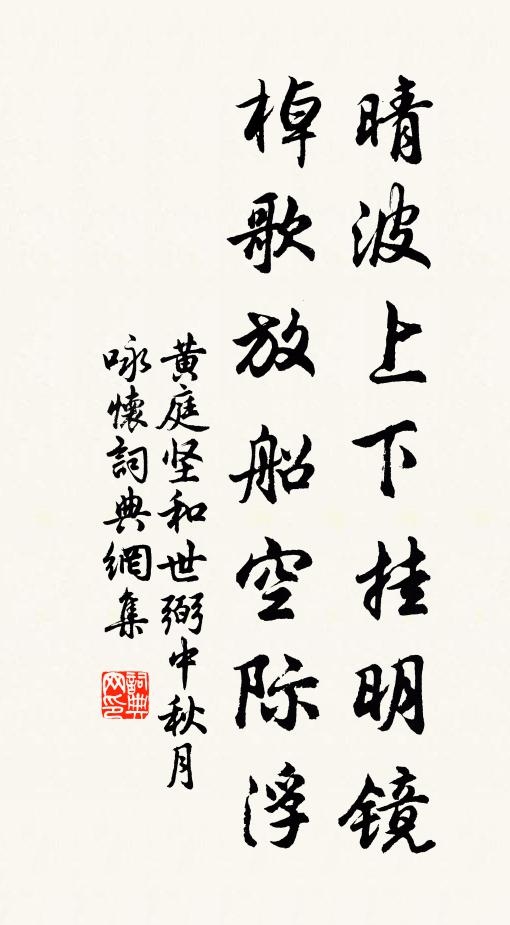 晴波上下挂明镜
棹歌放船空际浮
黄庭坚和世弼中秋月
咏懷詞典網集
詞典网印